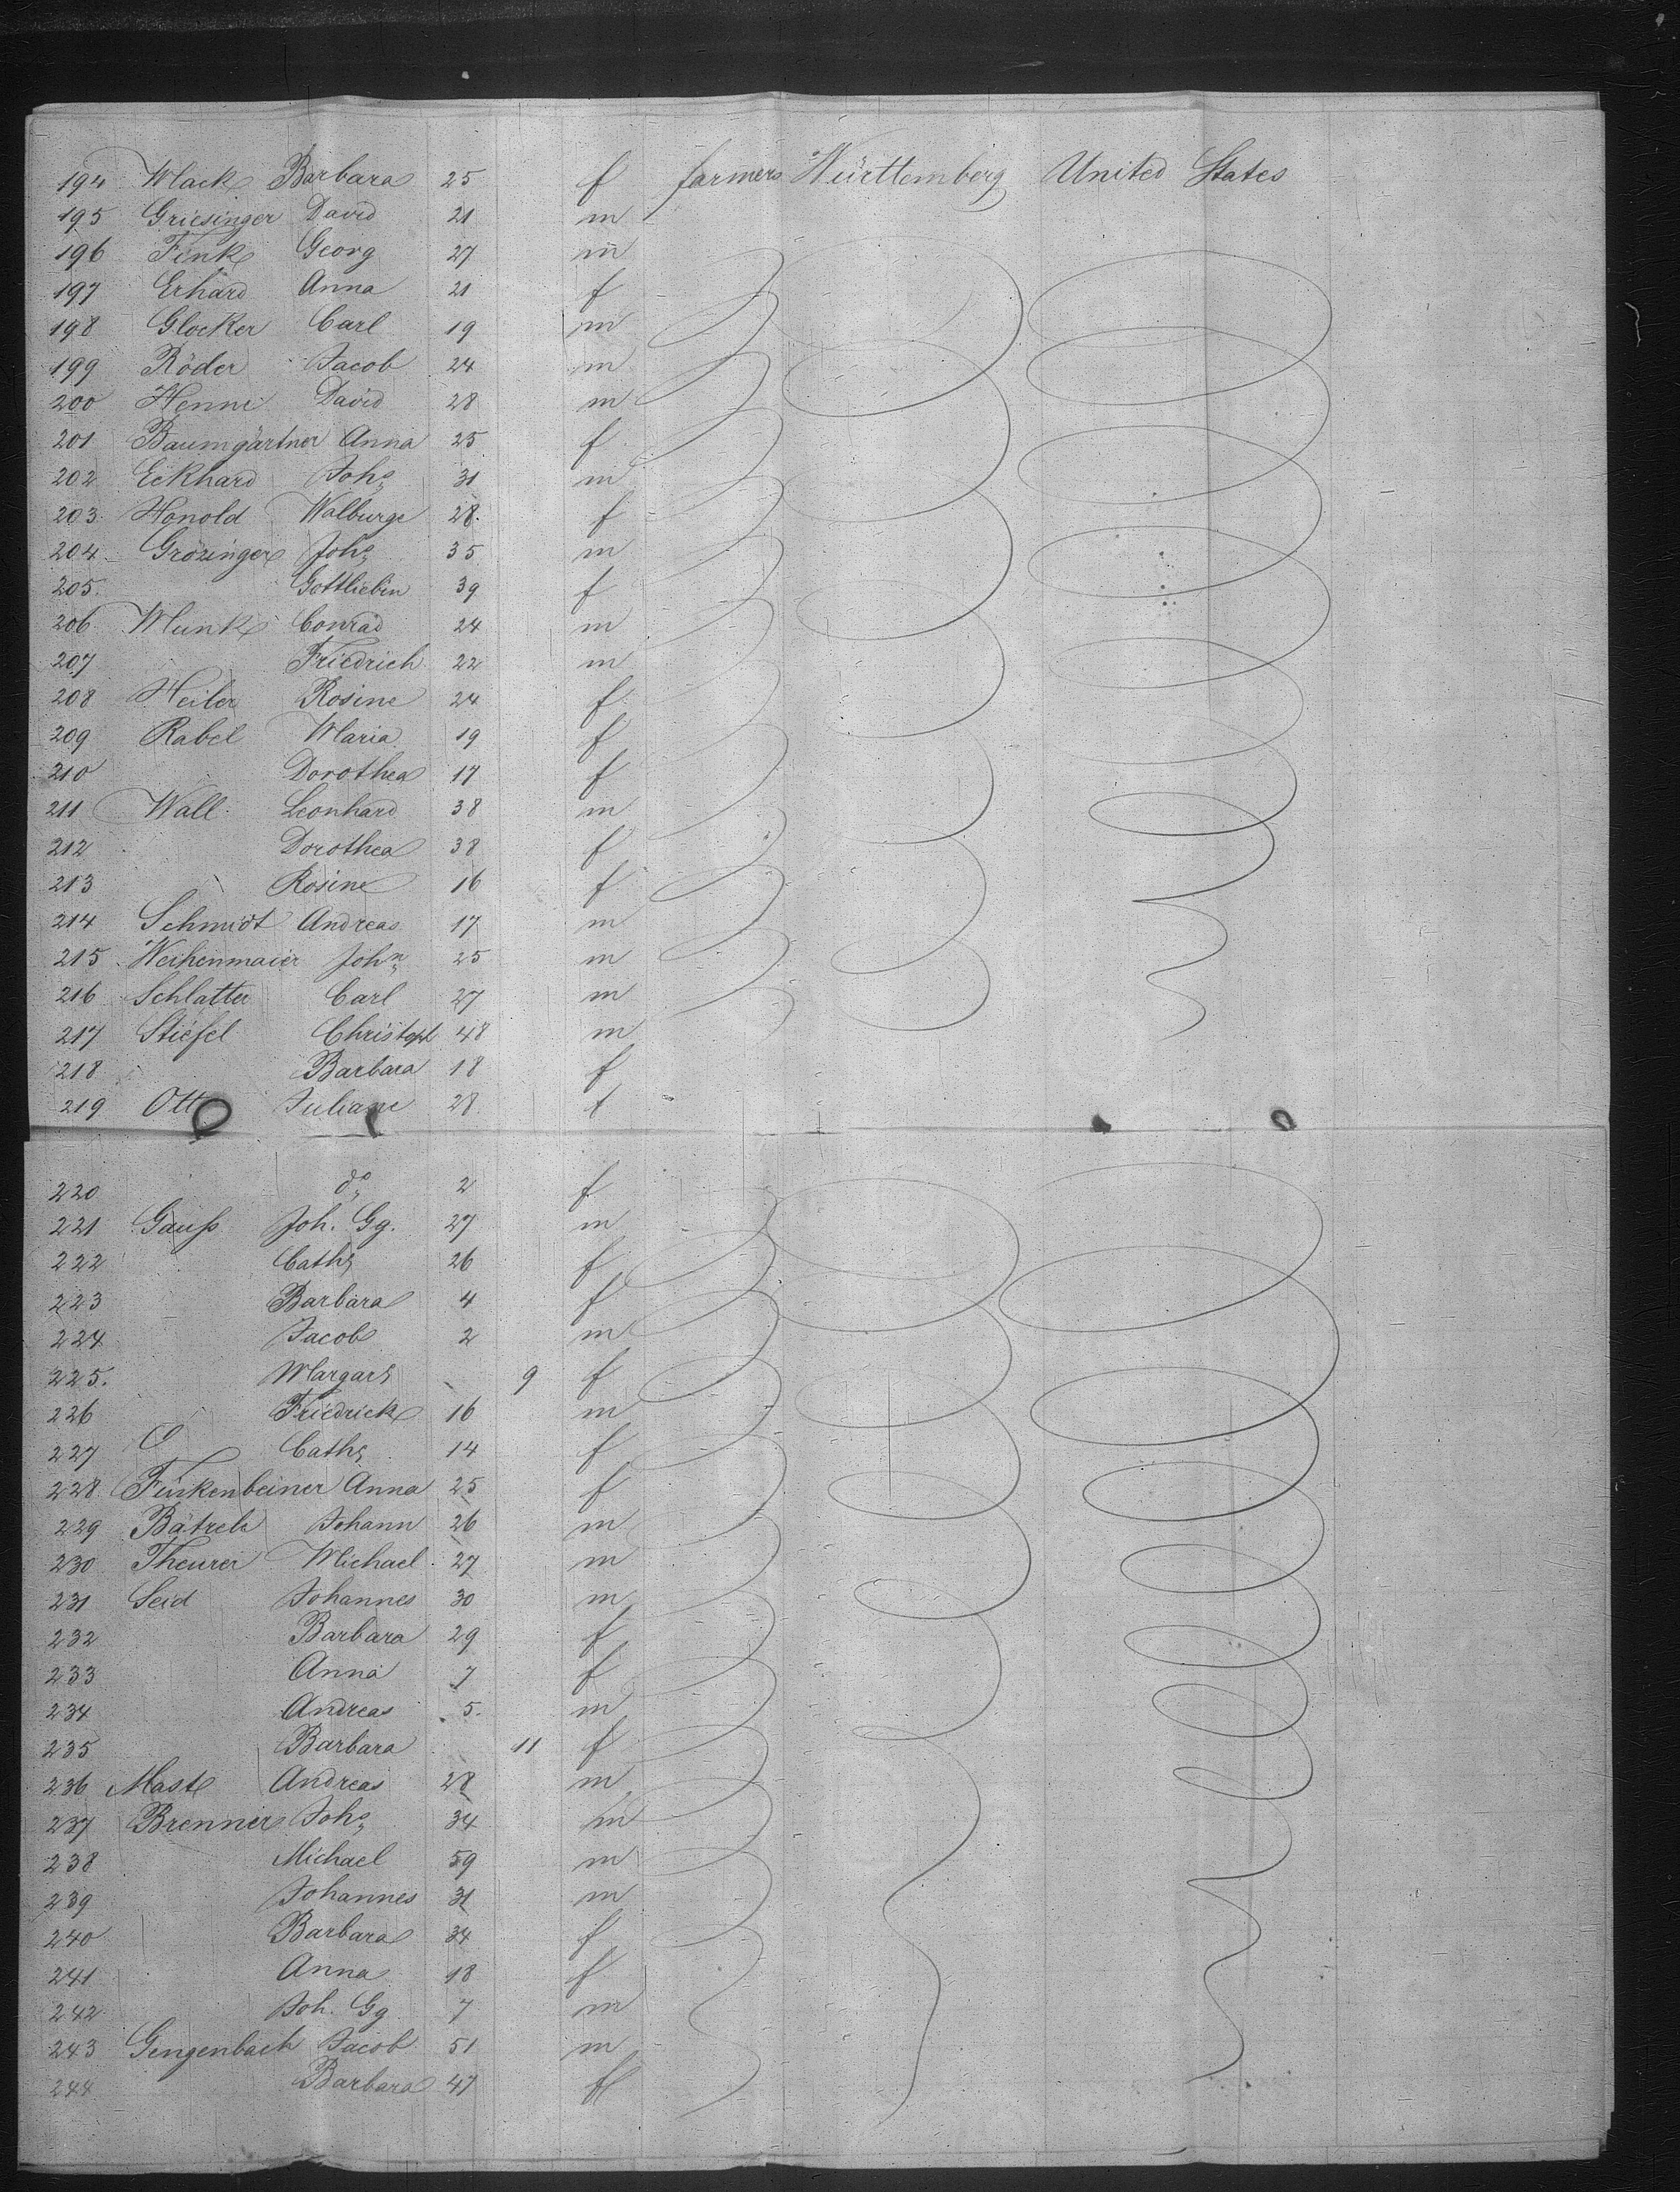 194 Mack Barbara 25 f farmers Württemberg United States
195 Griesinger David 21 m
196 Fink Georg 27 m
197 Erhard Anna 21 f
198 Glocker Carl 19 m
199 Röder Jacob 24 m
200 Henne David 28 m
201 Baumgärtner Anna 25 f
202 Eckhard Johs 31 m
203 Honold Walburge 28 f
204 Grözinger Johs 35 m
205 Gottliebin 39 f
206 Munk Conrad 24 m
207 Friedrich 22 m
208 Heiler Rosine 24 f
209 Rabel Maria 19 f
210 Dorothea 17 f
211 Wall Leonhard 38 m
212 Dorothea 38 f
213 Rosine 16 f
214 Schmidt Andreas 17 m
215 Weihenmaier John 25 m
216 Schlatter Carl 27 m
217 Stiefel Christoph 48 m
218 Barbara 18 f
219 Ott Juliane 28 f
220 do 2 f
221 Gauß Joh. Gg. 27 m
222 Cath 26 f
223 Barbara 4 f
224 Jacob 2 m
225. Margar 9 f
226 Friedrick 16 m
227 Cath 14 f
228 Finkenbeiner Anna 25 f
229 Johann 26 m
230 Theurer Michael 27 m
231 Seid Johannes 30 m
232 Barbara 29 f
233 Anna 7 f
234 Andreas 5. m
235 Barbara 11 f
236 Mast Andreas 28 m
237 Brenner Johs 34 m
238 Michael 59 m
239 Johannes 31 m
240 Barbara 34 f
241 Anna 18 f
242 Joh. Gg 7 m
243 Gengenbach Jacob 51 m
244 Barbara 47 f